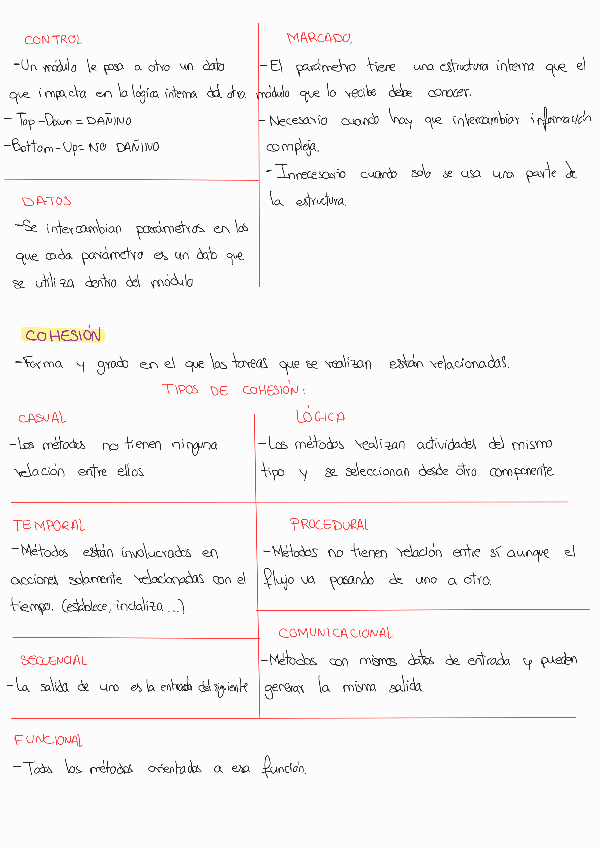 CONTROL
-Un módulo le pasa a otro un dato
que impacta en la lógica interna del otro
- Top-Down = DAÑINO
-Bottom-Up= NO DAÑINO
MARCADO.
-El parámetro tiene una estructura interna que el
módulo que lo recibe debe conocer.
-Necesario cuando hay que intercambiar información
compleja.
-Innecesario cuando solo se usa una parte de
la estructura.
DATOS
-Se intercambian parámetros en los
que cada parámetro es un dato que
se utiliza dentro del módulo
COHESIÓN
-Forma y grado en el que las tareas que se realizan están relacionadas.
TIPOS DE COHESIÓN:
CASUAL
-Los métodos no tienen ninguna
relación entre ellos
LÓGICA
-Los métodos realizan actividades del mismo
tipo y se seleccionan desde otro componente
TEMPORAL
-Métodos están involucrados en
acciones solamente relacionadas con el
tiempo. (establece, inicializa...)
PROCEDURAL
-Métodos no tienen relación entre sí aunque el
flujo va pasando de uno a otro.
SECUENCIAL
-La salida de uno es la entrada del siguiente
COMUNICACIONAL
-Métodos con mismos datos de entrada y pueden
generar la misma salida
FUNCIONAL
-Todos los métodos orientados a esa función.